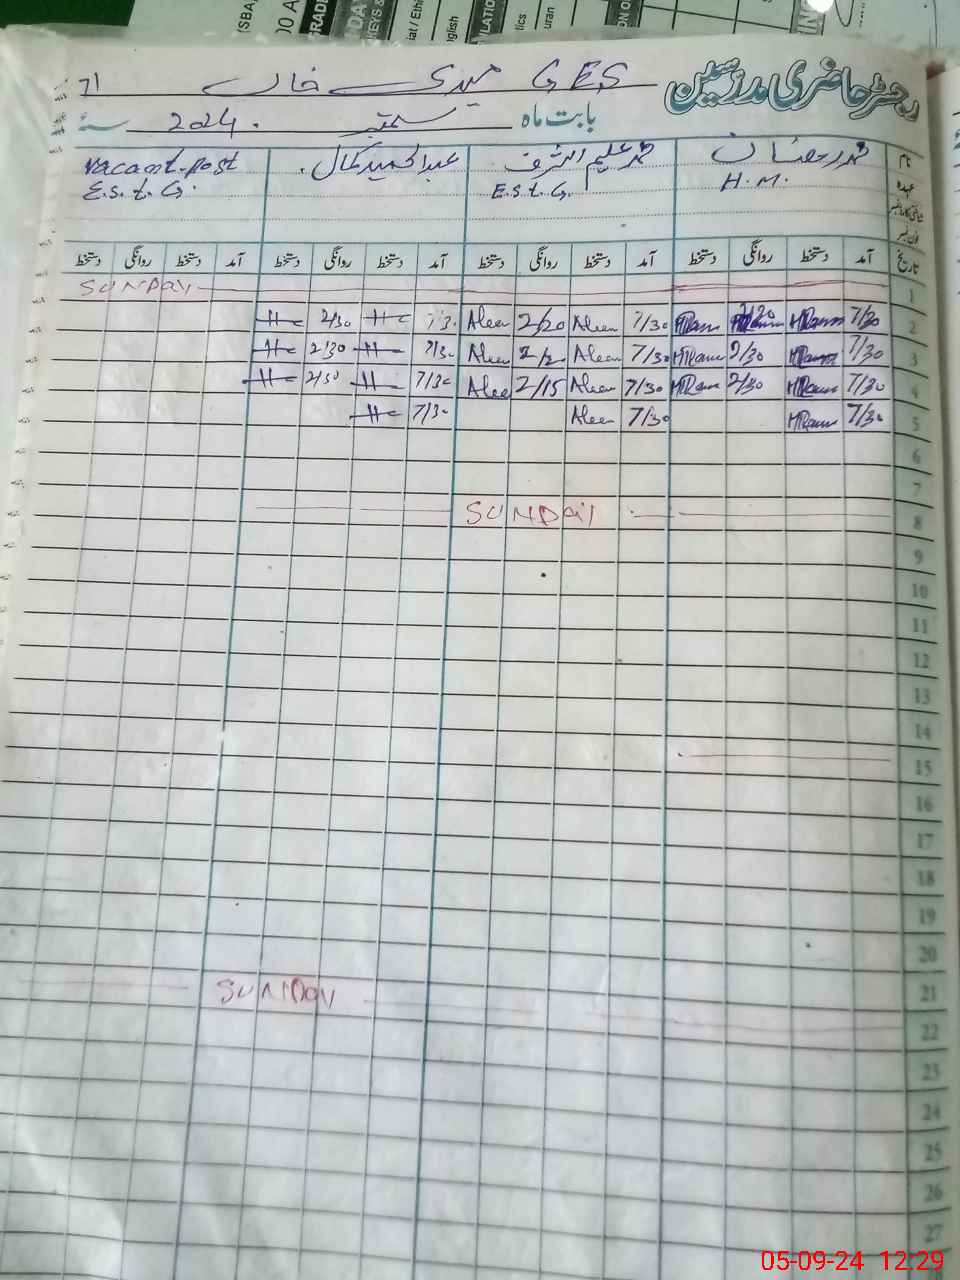 (SBA)
GRADE
iat / Ethi
nglish
tics
uran
رجسٹر حاضری مدرسین
GES میری خاں 71
بابت ماہ ستمبر 2024ء
نام محمد رمضان محمد علیم اشرف عبدالحمید کمال Vacant-Post
عہدہ H.M. E.S.t.G. E.S.t.G.
فون نمبر
تاریخ آمد دستخط روانگی دستخط آمد دستخط روانگی دستخط آمد دستخط روانگی دستخط آمد دستخط روانگی دستخط
1 SUNDAY
2 7/30 MRamn 2/30 7/30 Aleem 2/20 Aleem 7/3 H 2/30 H
3 7/30 MRamn 2/30 MRamn 7/30 Aleem 2/2 Aleem 7/30 H 2/30 H
4 7/30 MRamn 2/30 MRamn 7/30 Aleem 2/15 Alee 7/30 H 2/30 H
5 7/30 MRamn 7/30 Aleem 7/30 H
6
7
8 SUNDAY
9
10
11
12
13
14
15
16
17
18
19
20
21 SUNDAY
22
23
24
25
26
27
05-09-24 12.29